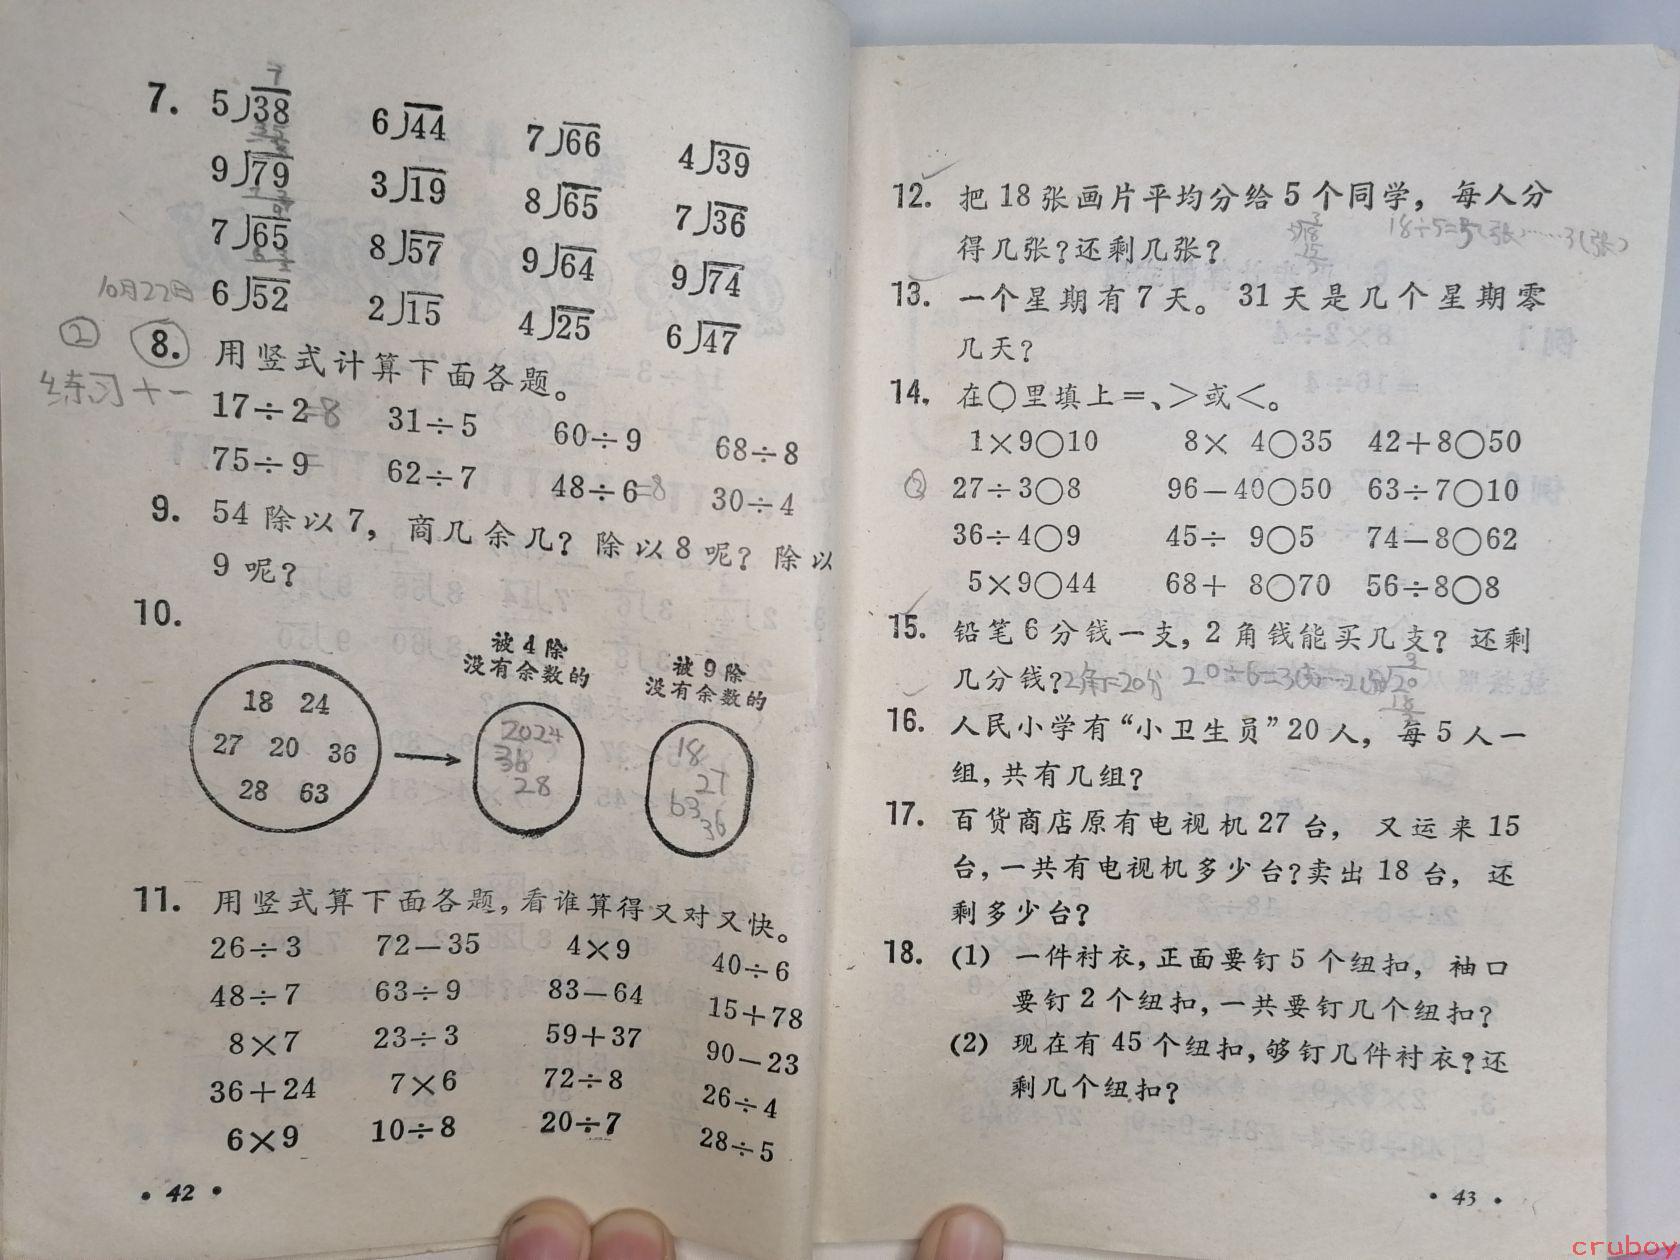 7
7. 5⟌38 6⟌44 7⟌66 4⟌39
35
9⟌79 3⟌19 8⟌65 7⟌36
7⟌65 8⟌57 9⟌64 9⟌74
10月22日 6⟌52 2⟌15 4⟌25 6⟌47
② 8. 用竖式计算下面各题。
练习十一 17÷2=8 31÷5 60÷9 68÷8
75÷9= 62÷7 48÷6=8 30÷4
9. 54 除以 7, 商几余几? 除以 8 呢? 除以
9 呢?
10.
被 4 除
没有余数的
被 9 除
没有余数的
18 24
27 20 36
28 63
20 24
36
28
18
27
63
36
11. 用竖式算下面各题,看谁算得又对又快。
26÷3 72-35 4×9 40÷6
48÷7 63÷9 83-64 15+78
8×7 23÷3 59+37 90-23
36+24 7×6 72÷8 26÷4
6×9 10÷8 20÷7 28÷5
• 42 •
12. 把 18 张画片平均分给 5 个同学, 每人分
得几张?还剩几张?
3
5⟌18
15
3
18÷5=3(张)……3(张)
13. 一个星期有 7 天。 31 天是几个星期零
几天?
14. 在○里填上=、>或<。
1×9○10 8× 4○35 42+8○50
② 27÷3○8 96-40○50 63÷7○10
36÷4○9 45÷ 9○5 74-8○62
5×9○44 68+ 8○70 56÷8○8
15. 铅笔 6 分钱一支, 2 角钱能买几支? 还剩
几分钱? 2角=20分 20÷6=3(支)…2(分)
3
6⟌20
18
16. 人民小学有“小卫生员”20 人, 每 5 人一
组, 共有几组?
17. 百货商店原有电视机 27 台, 又运来 15
台, 一共有电视机多少台?卖出 18 台, 还
剩多少台?
18. (1) 一件衬衣, 正面要钉 5 个纽扣, 袖口
要钉 2 个纽扣, 一共要钉几个纽扣?
(2) 现在有 45 个纽扣, 够钉几件衬衣?还
剩几个纽扣?
• 43 •
cruboy